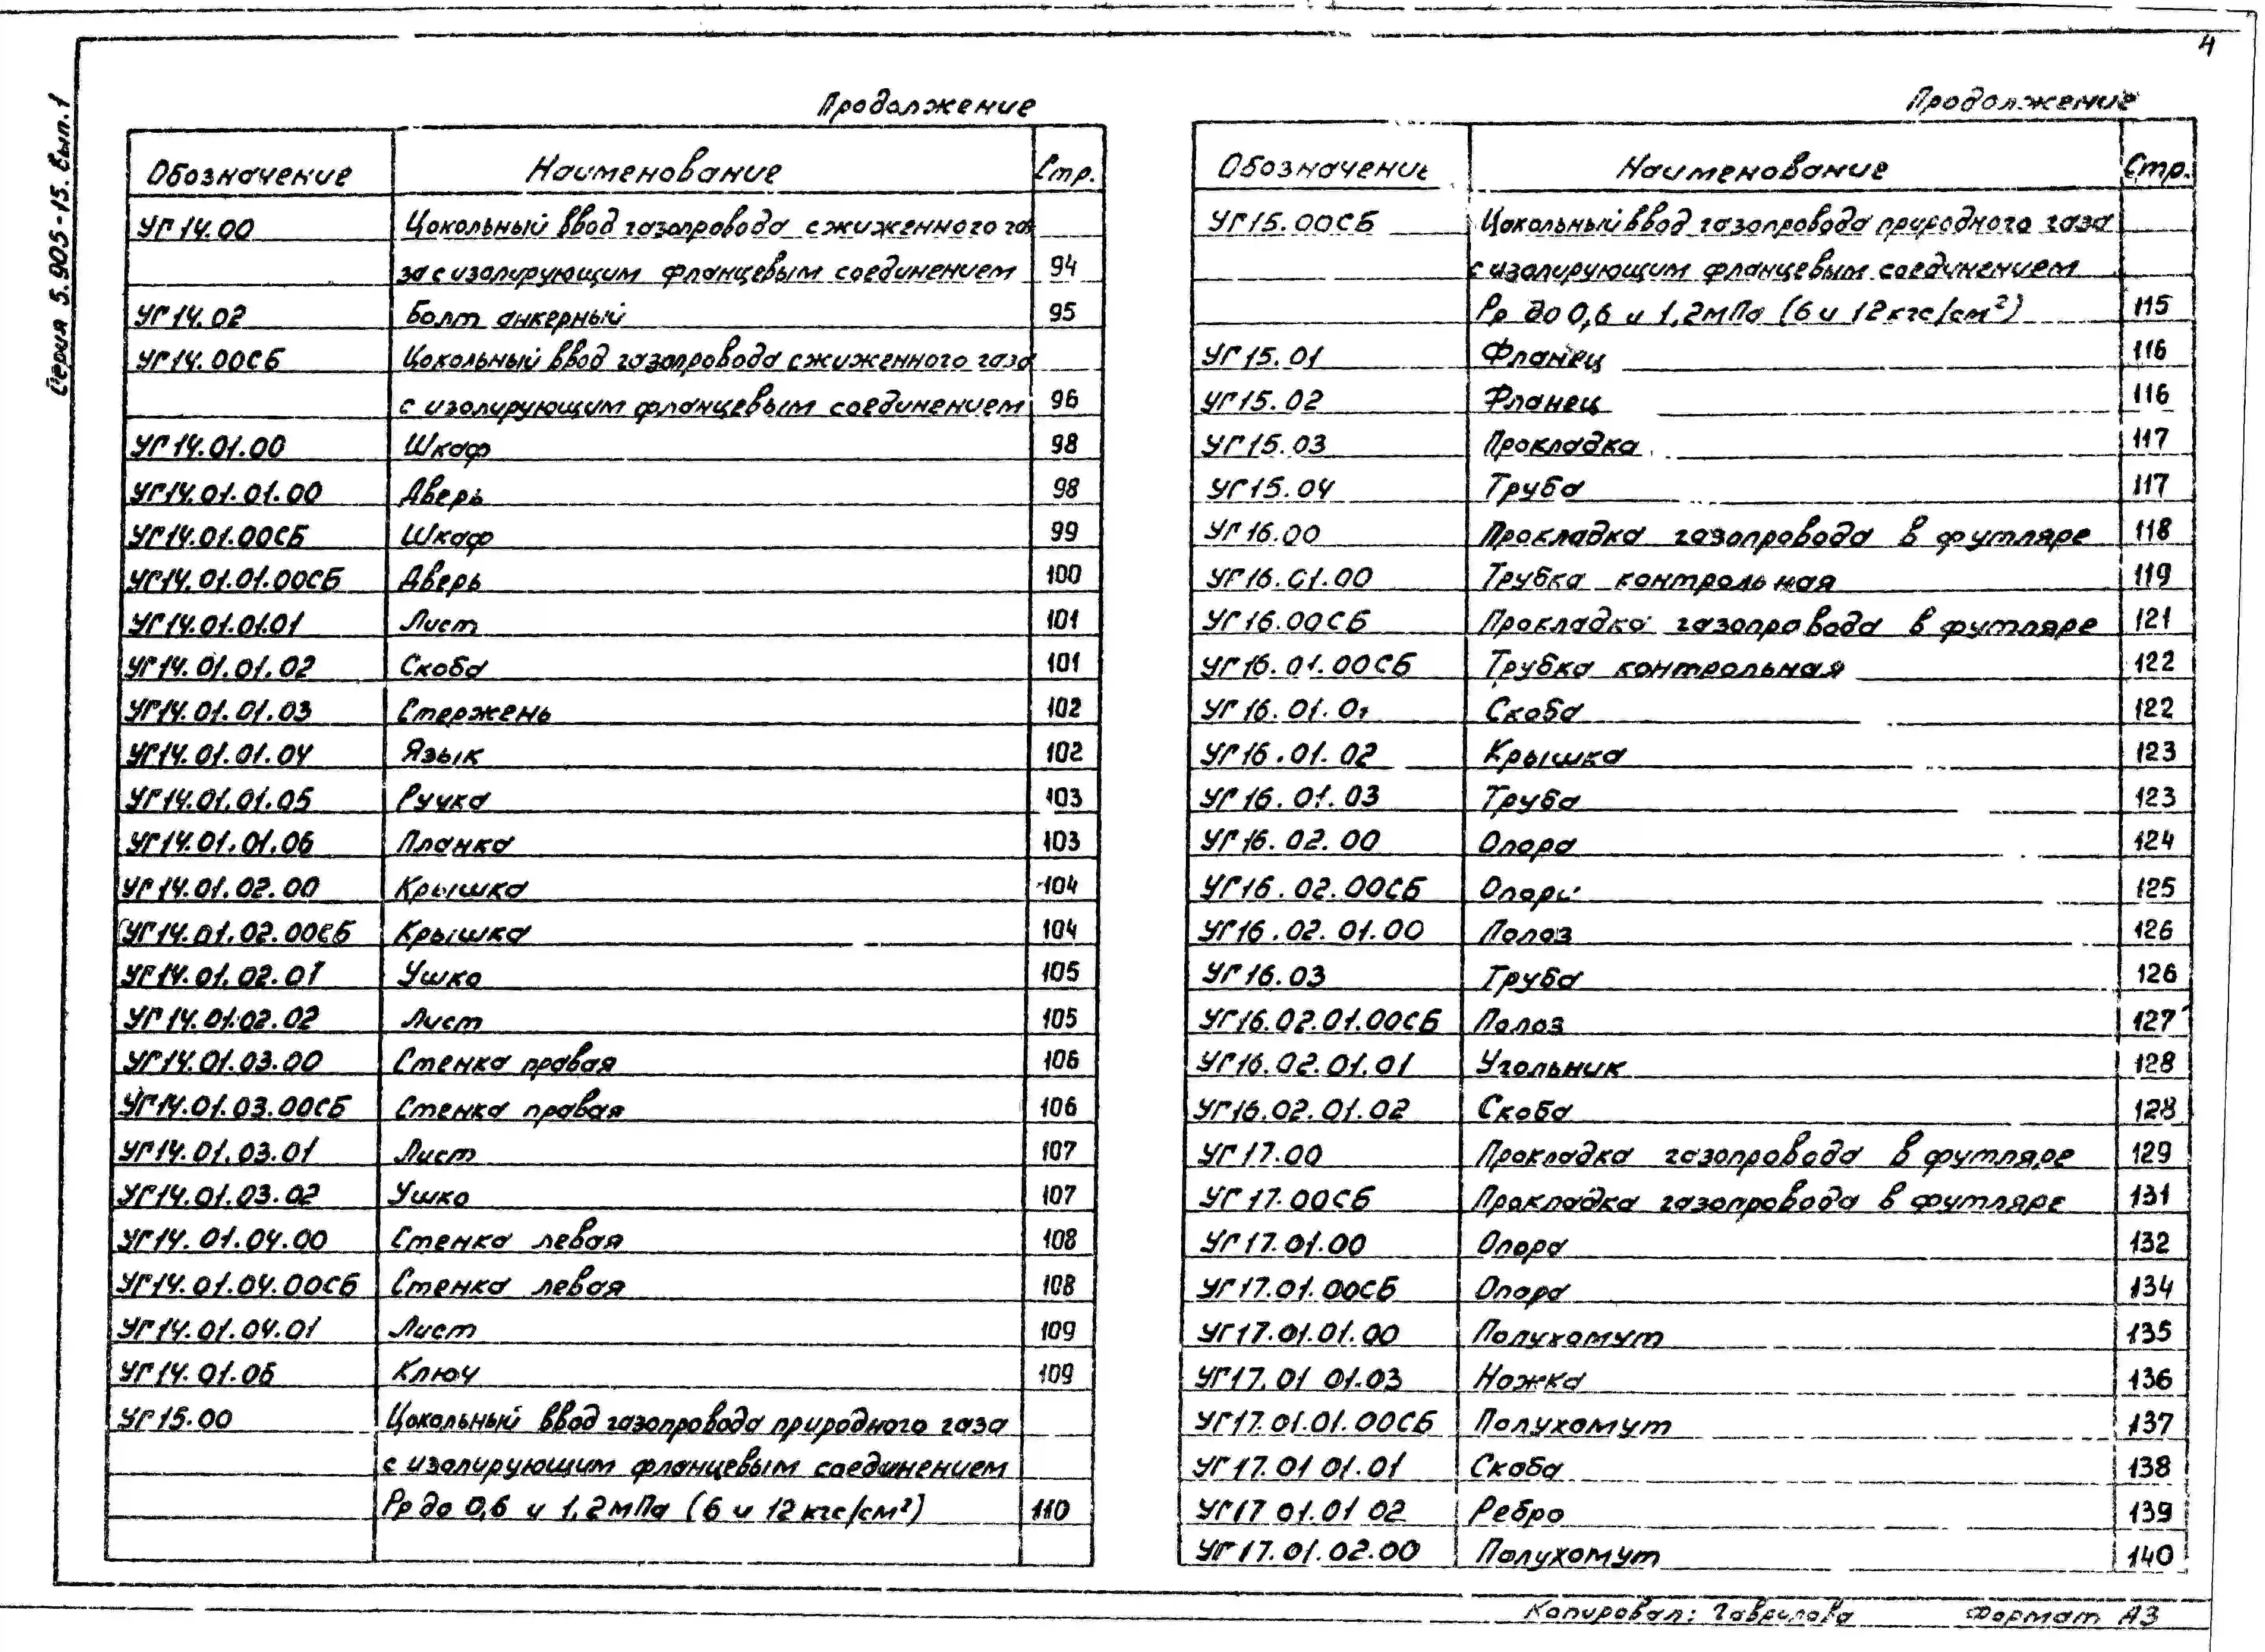 4
Серия 5.905-15. Вып. 1
Продолжение
Обозначение Наименование Стр.
УГ 14.00 Цокольный ввод газопровода сжиженного га
за с изолирующим фланцевым соединением 94
УГ 14.02 Болт анкерный 95
УГ 14.00СБ Цокольный ввод газопровода сжиженного газа
с изолирующим фланцевым соединением 96
УГ 14.01.00 Шкаф 98
УГ14.01.01.00 Дверь 98
УГ14.01.00СБ Шкаф 99
УГ14.01.01.00СБ Дверь 100
УГ14.01.01.01 Лист 101
УГ14.01.01.02 Скоба 101
УГ14.01.01.03 Стержень 102
УГ14.01.01.04 Язык 102
УГ14.01.01.05 Ручка 103
УГ14.01.01.06 Планка 103
УГ14.01.02.00 Крышка 104
УГ14.01.02.00СБ Крышка 104
УГ14.01.02.01 Ушко 105
УГ14.01.02.02 Лист 105
УГ14.01.03.00 Стенка правая 106
УГ14.01.03.00СБ Стенка правая 106
УГ14.01.03.01 Лист 107
УГ14.01.03.02 Ушко 107
УГ14.01.04.00 Стенка левая 108
УГ14.01.04.00СБ Стенка левая 108
УГ14.01.04.01 Лист 109
УГ14.01.05 Ключ 109
УГ15.00 Цокольный ввод газопровода природного газа
с изолирующим фланцевым соединением
Рр до 0,6 и 1,2мПа (6 и 12 кгс/см²) 110
Продолжение
Обозначение Наименование Стр.
УГ15.00СБ Цокольный ввод газопровода природного газа
с изолирующим фланцевым соединением
Рр до 0,6 и 1,2мПа (6 и 12 кгс/см²) 115
УГ15.01 Фланец 116
УГ15.02 Фланец 116
УГ15.03 Прокладка 117
УГ15.04 Труба 117
УГ16.00 Прокладка газопровода в футляре 118
УГ16.01.00 Трубка контрольная 119
УГ16.00СБ Прокладка газопровода в футляре 121
УГ16.01.00СБ Трубка контрольная 122
УГ16.01.01 Скоба 122
УГ16.01.02 Крышка 123
УГ16.01.03 Труба 123
УГ16.02.00 Опора 124
УГ16.02.00СБ Опора 125
УГ16.02.01.00 Полоз 126
УГ16.03 Труба 126
УГ16.02.01.00СБ Полоз 127
УГ16.02.01.01 Угольник 128
УГ16.02.01.02 Скоба 128
УГ17.00 Прокладка газопровода в футляре 129
УГ17.00СБ Прокладка газопровода в футляре 131
УГ17.01.00 Опора 132
УГ17.01.00СБ Опора 134
УГ17.01.01.00 Полухомут 135
УГ17.01 01.03 Ножка 136
УГ17.01.01.00СБ Полухомут 137
УГ17.01 01.01 Скоба 138
УГ17 01.01 02 Ребро 139
УГ17.01.02.00 Полухомут 140
Копировал: Гаврилова Формат А3